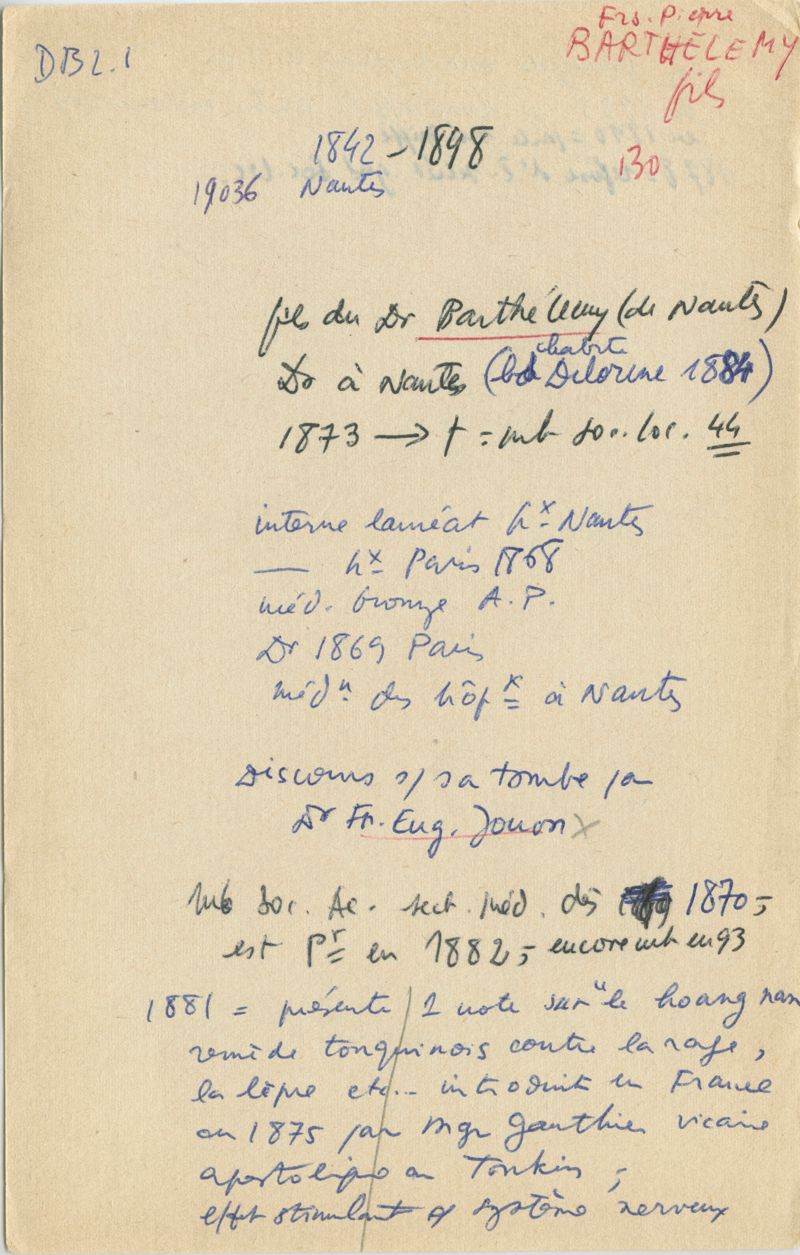 DB2.1
Frs. Pierre
BARTHÉLEMY
fils
1842 - 1898
130
19036 Nantes
fils du Dr Barthélemy (de Nantes)
habite
Dr à Nantes (bd Delorme 1884)
1873 → † = mb soc. loc. 44
interne lauréat hx Nantes
— hx Paris 1868
méd. bronze A.P.
Dr 1869 Paris
médn des hôpx à Nantes
Discours s/ sa tombe par
Dr Fr. Eug. Jouon x
mb Soc. Ac. sect. méd. dès 1870 =
est Pr en 1882 = encore mb en 93
1881 = présente 1 note sur "le hoang nan
remède tonquinois contre la rage,
la lèpre etc... introduit en France
en 1875 par Mgr Gauthier vicaire
apostolique au Tonkin ;
effet stimulant système nerveux